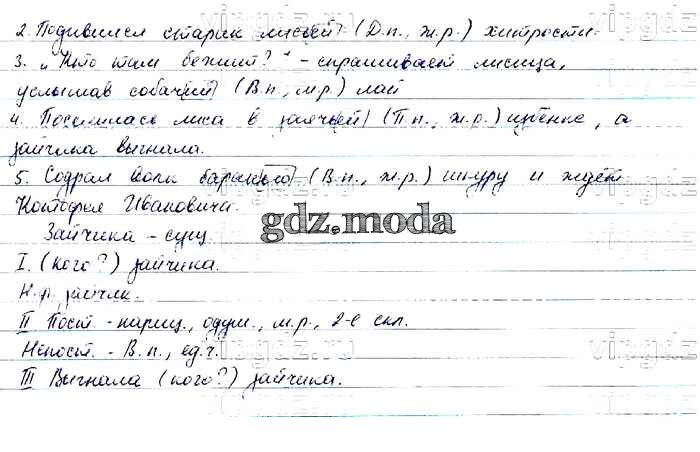 2. Подивился старик лисьей (Д.п., ж.р.) хитрости.
3. „Кто там бежит?“ - спрашивает лисица,
услышав собачий (В.п., м.р.) лай
4. Поселилась лиса в заячьей (П.п., ж.р.) избёнке, а
зайчика выгнала.
5. Содрал волк баранью (В.п., ж.р.) шкуру и ждёт
Котофея Ивановича.
gdz.moda
Зайчика - сущ.
I. (кого?) зайчика.
Н.ф. зайчик.
II Пост. - нариц., одуш., м.р., 2-е скл.
Непост. - В.п., ед.ч.
III Выгнала (кого?) зайчика.